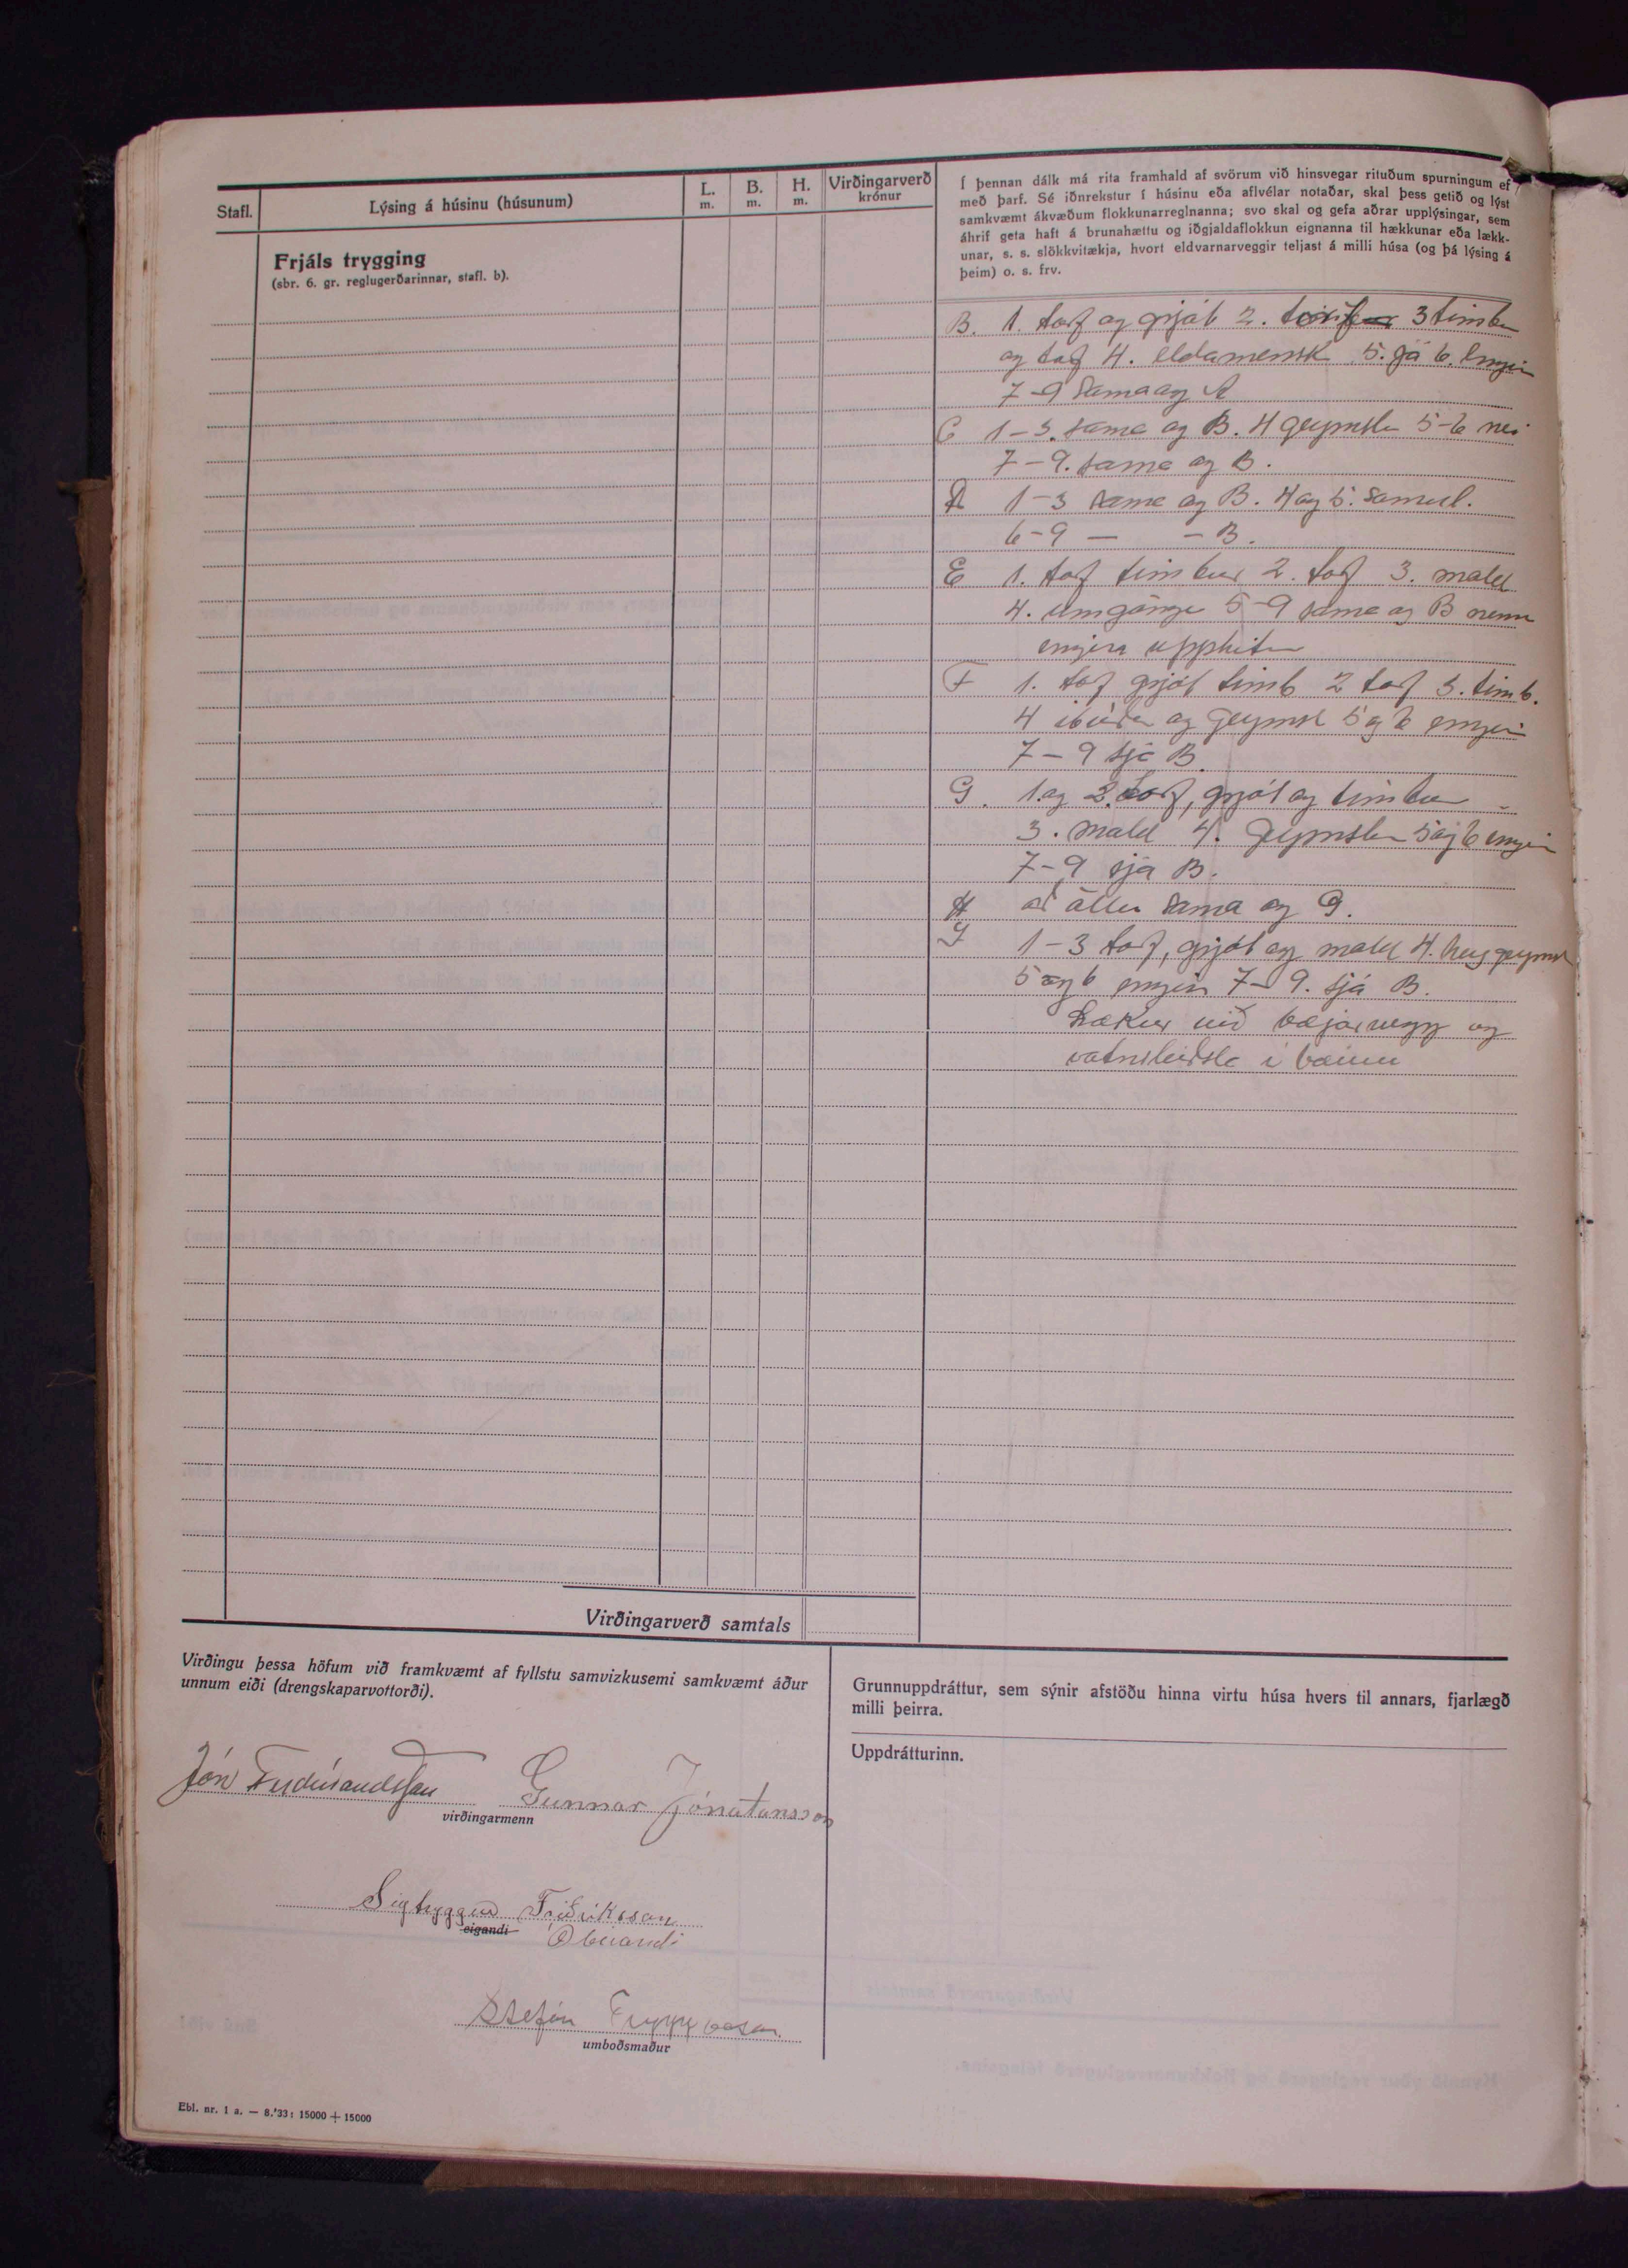 Stafl.
Lýsing á húsinu (húsunum)
L. m.
B. m.
H. m.
Virðingarverð krónur
Frjáls trygging
(sbr. 6. gr. reglugerðarinnar, stafl. b).
Í þennan dálk má rita framhald af svörum við hinsvegar rituðum spurningum ef
með þarf. Sé iðnrekstur í húsinu eða aflvélar notaðar, skal þess getið og lýst
samkvæmt ákvæðum flokkunarreglnanna; svo skal og gefa aðrar upplýsingar, sem
áhrif geta haft á brunahættu og iðgjaldaflokkun eignanna til hækkunar eða lækk-
unar, s. s. slökkvitækja, hvort eldvarnarveggir teljast á milli húsa (og þá lýsing á
þeim) o. s. frv.
B. 1. torf og grjót 2. torf 3 timbur
og torf 4. eldamensk 5. já 6. Engin
7-9 Sama og A
C 1-3. sama og B. 4 geymsla 5-6 nei
7-9. sama og B.
D 1-3 sama og B. 4 og 5.
6-9 — - B.
E 1. torf timbur 2. torf 3. mold
4. umgangur 5-9 sama og B nema
engin upphitun
F 1. torf grjót timb 2 torf 3. timb.
4 íbúðar og geymsl 5 og 6 engin
7-9 sjá B.
G. 1. og 2. torf, grjót og timbur
3. mold 4. Geymsla 5 og 6 engin
7-9 sjá B.
H að öllu sama og G.
I 1-3 torf, grjót og mold 4. heygeymsl
5 og 6 engin 7-9. sjá B.
Lækur við bæjarvegg og
vatnsleiðsla í bænum
Virðingarverð samtals
Virðingu þessa höfum við framkvæmt af fyllstu samvizkusemi samkvæmt áður
unnum eiði (drengskaparvottorði).
Jón Ferdínandsson Gunnar Jónatansson
virðingarmenn
Sigtryggur Friðriksson
eigandi Ábúandi
Stefán Tryggvason
umboðsmaður
Grunnuppdráttur, sem sýnir afstöðu hinna virtu húsa hvers til annars, fjarlægð
milli þeirra.
Uppdrátturinn.
Ebl. nr. 1 a. — 8.'33: 15000 + 15000